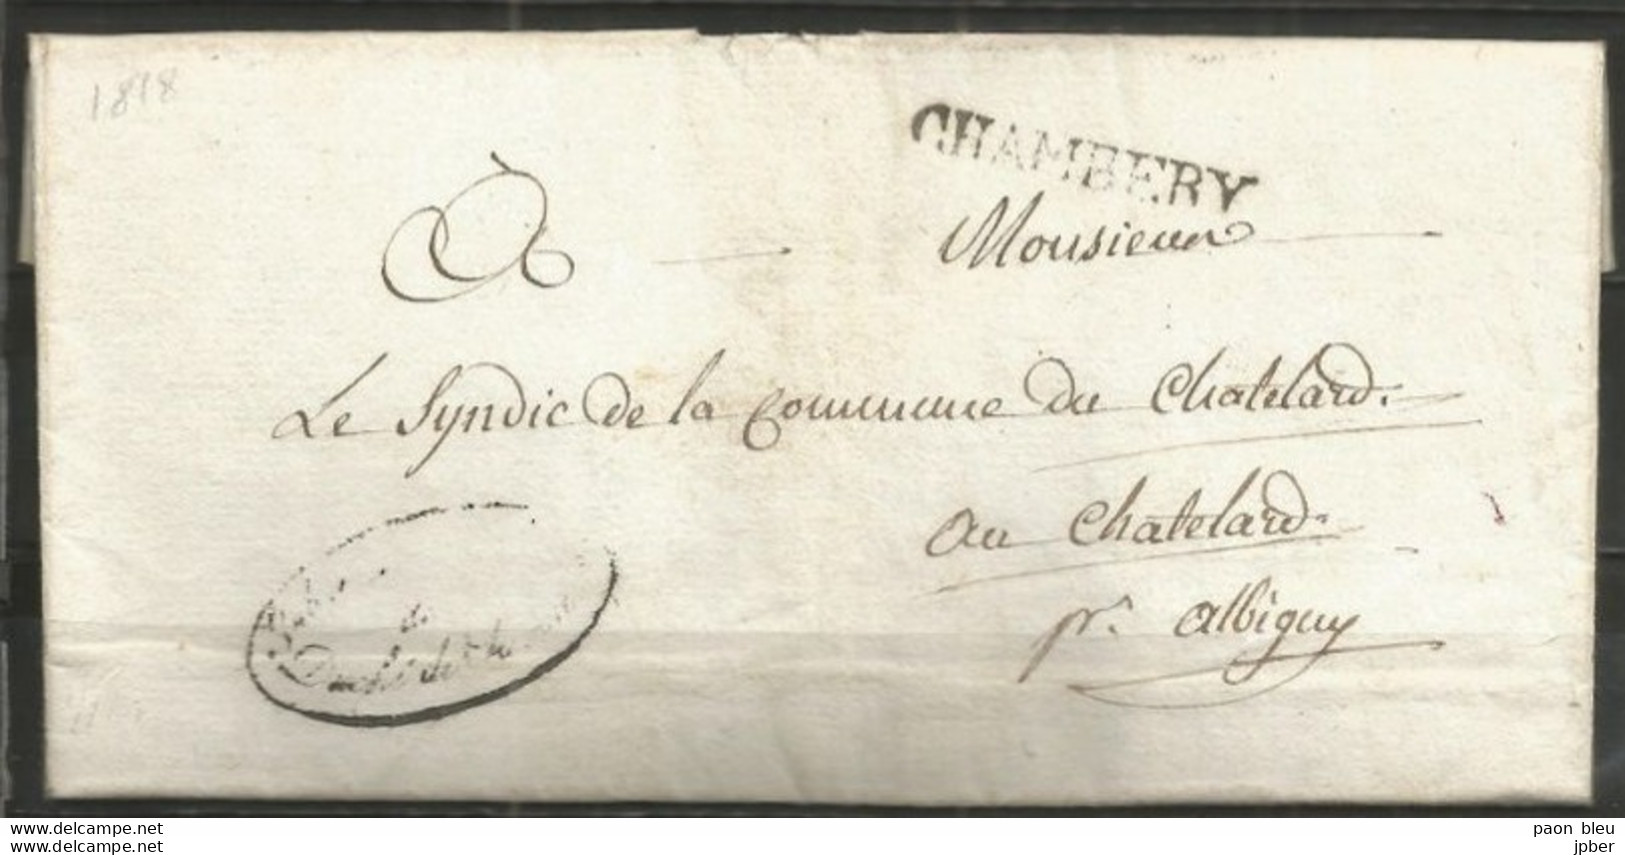 1818
CHAMBERY
A Monsieur
Le Syndic de la Commune du Chatelard.
au Chatelard.
pr. albiguy
de
Duché de
www.delcampe.net
paon bleu
jpber